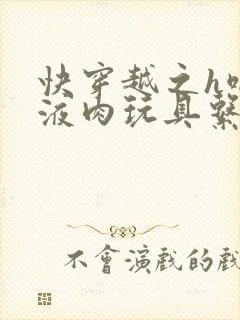 快穿越之h
液肉玩具繫
不會演戲的戲